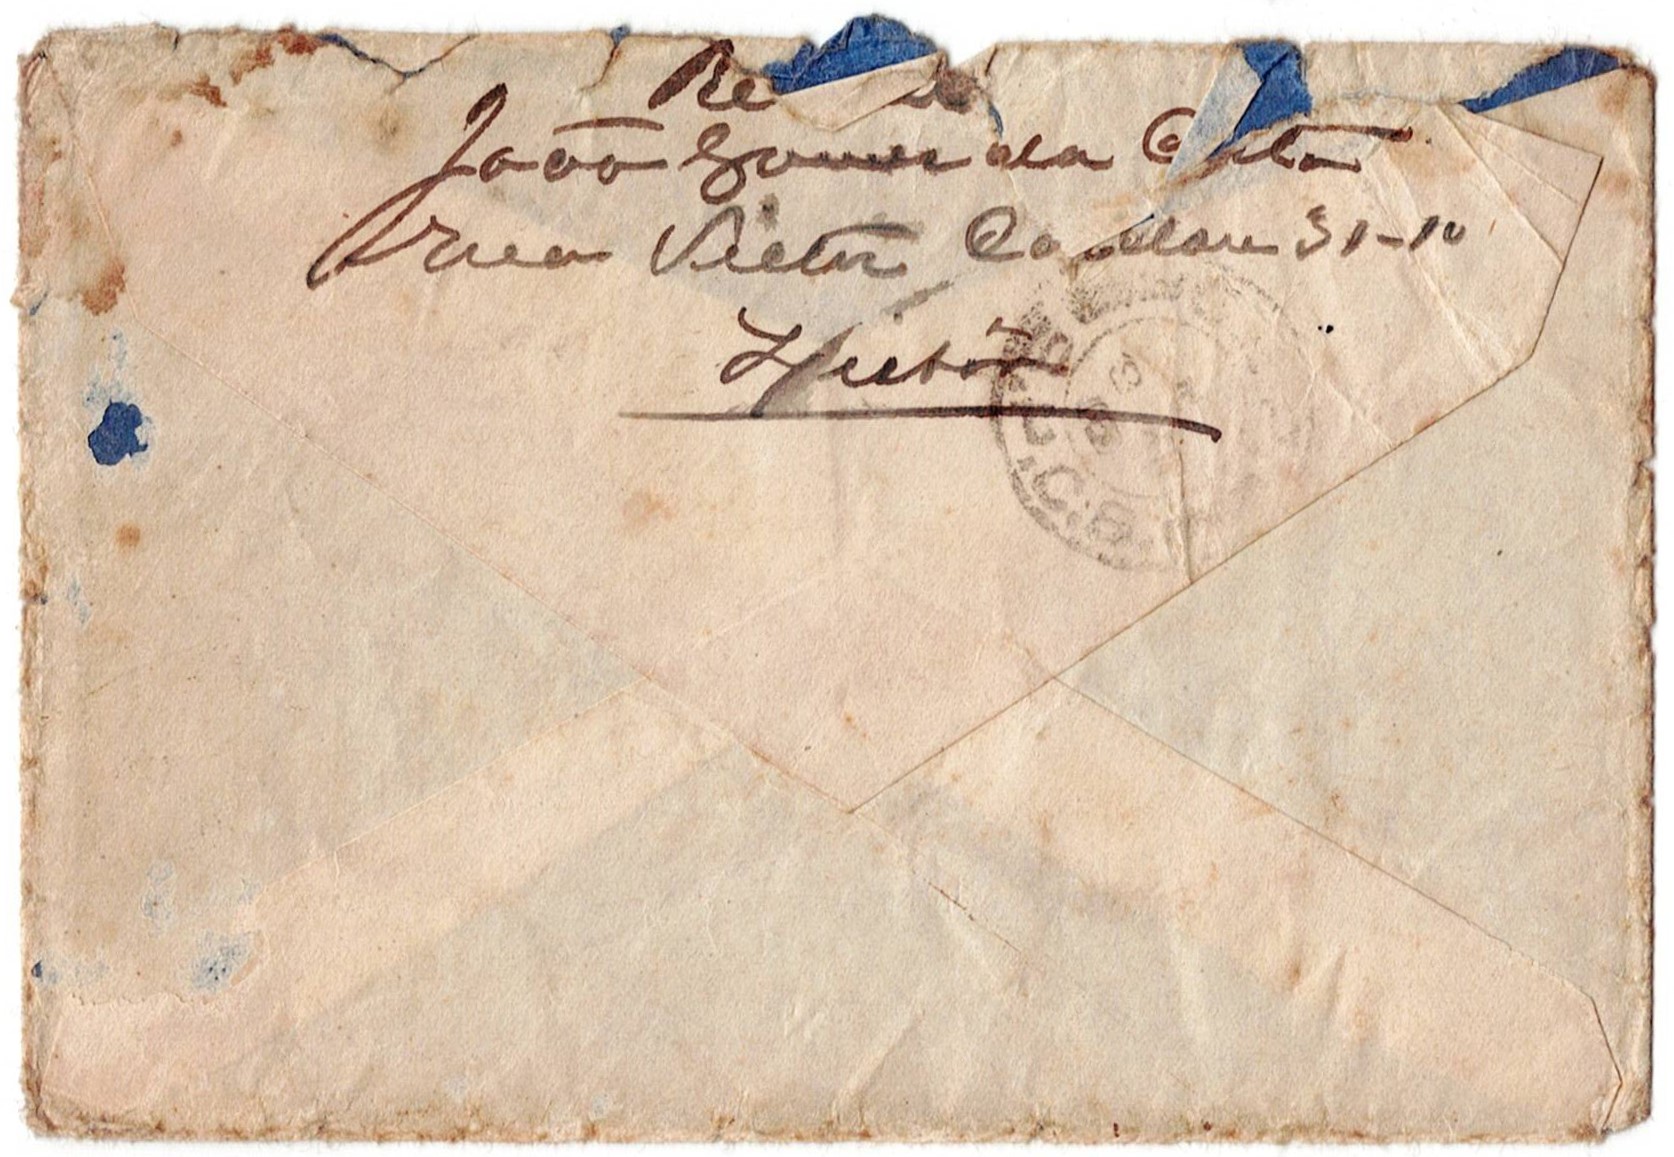 João Gomes da Costa
Rua Victor Cordon 31-1º
Lisboa